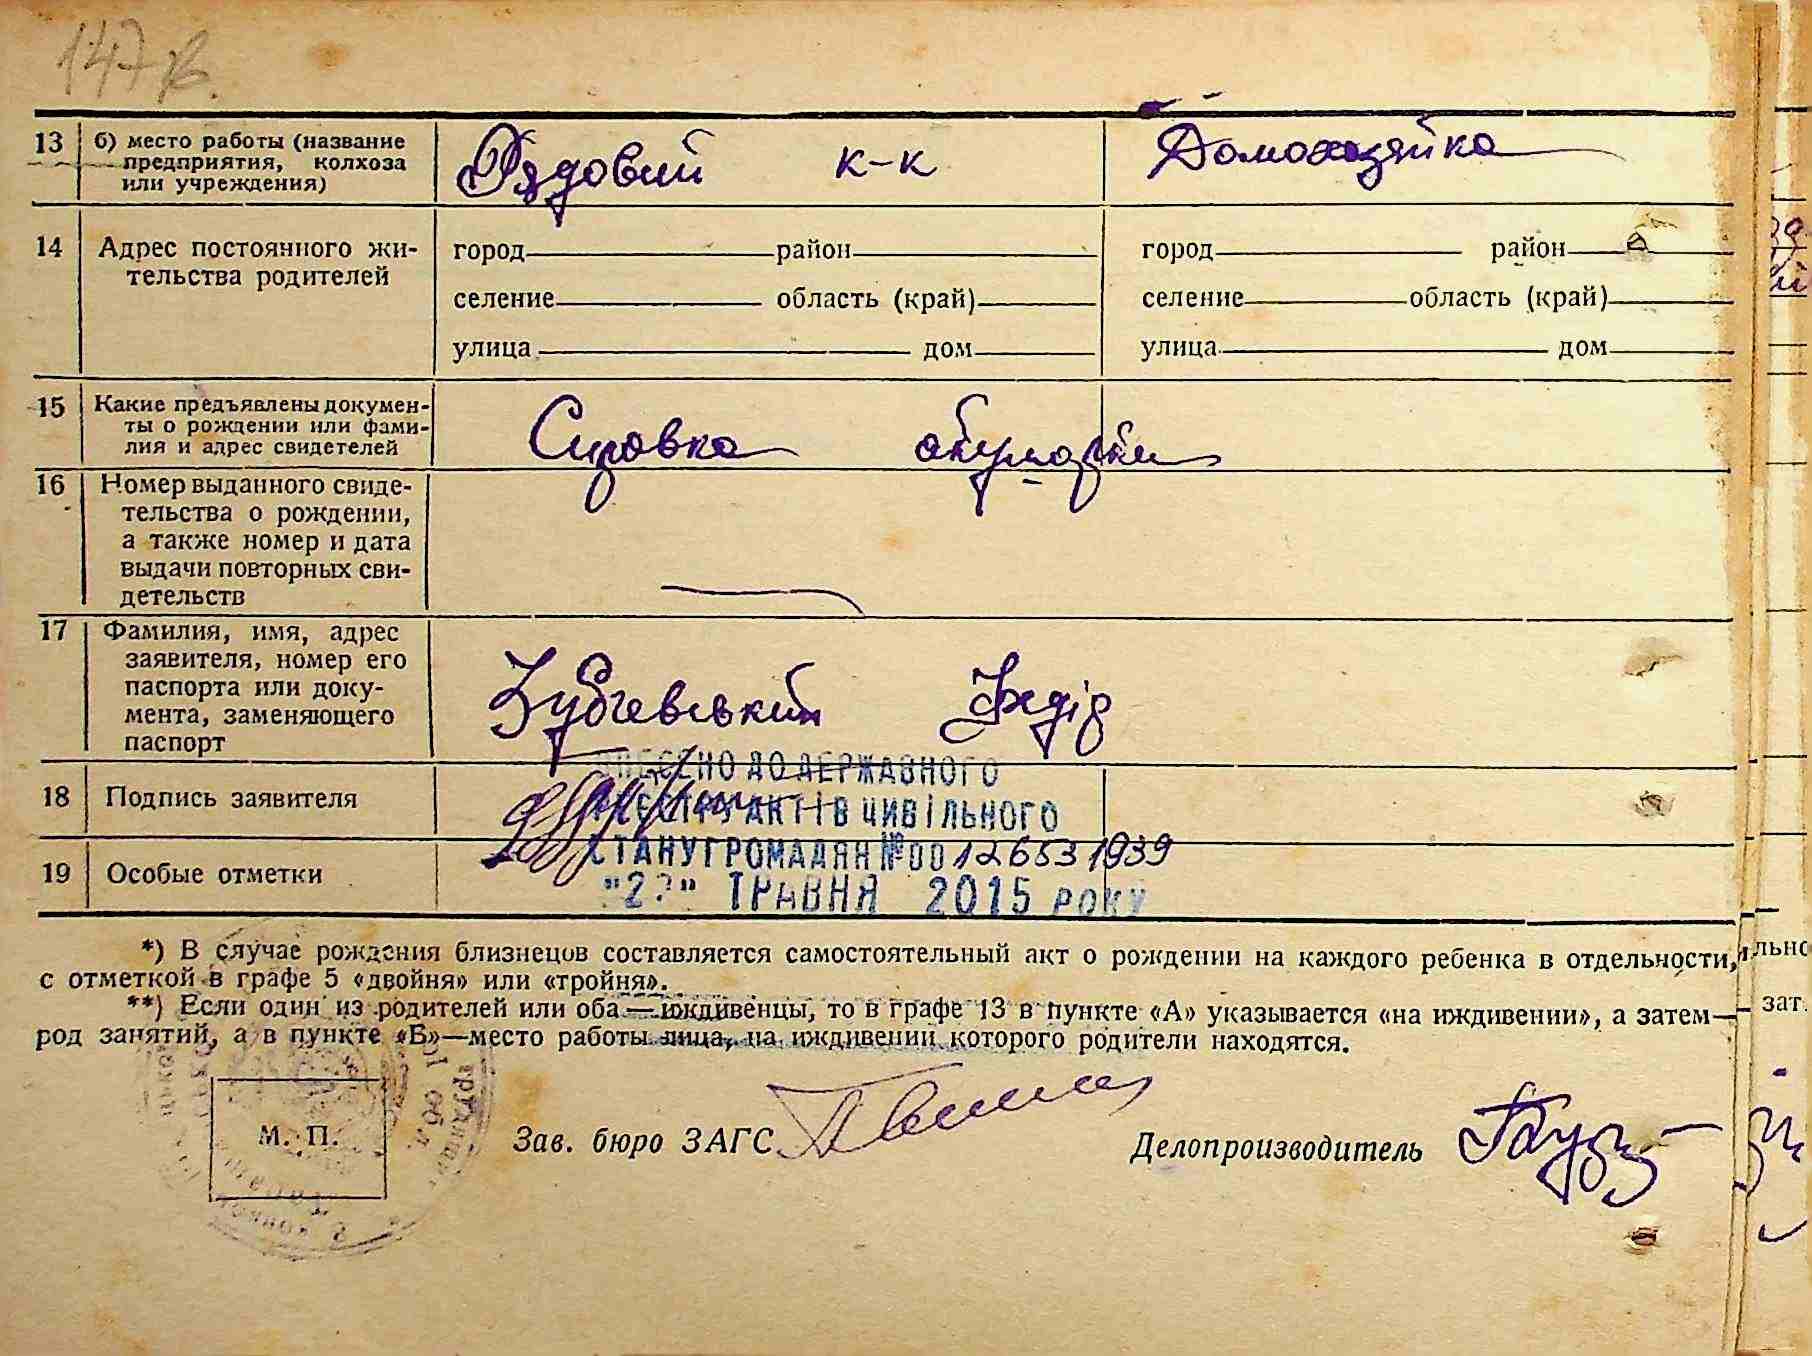 147в.
13 б) место работы (название предприятия, колхоза или учреждения) Рядовий к-к Домохозяйка
14 Адрес постоянного жи-
тельства родителей
город район город район
селение область (край) селение область (край)
улица дом улица дом
15 Какие предъявлены докумен-
ты о рождении или фами-
лия и адрес свидетелей
Справка акушерки
16 Номер выданного свиде-
тельства о рождении,
а также номер и дата
выдачи повторных сви-
детельств
17 Фамилия, имя, адрес
заявителя, номер его
паспорта или доку-
мента, заменяющего
паспорт
Зубчевський Федір
18 Подпись заявителя
19 Особые отметки
ВНЕСЕНО ДО ДЕРЖАВНОГО
РЕЄСТРУ АКТІВ ЦИВІЛЬНОГО
СТАНУ ГРОМАДЯН №00126531939
"2?" ТРАВНЯ 2015 РОКУ
*) В случае рождения близнецов составляется самостоятельный акт о рождении на каждого ребенка в отдельности,
с отметкой в графе 5 «двойня» или «тройня».
**) Если один из родителей или оба — иждивенцы, то в графе 13 в пункте «А» указывается «на иждивении», а затем—
род занятий, а в пункте «Б»—место работы лица, на иждивении которого родители находятся.
М. П.
Зав. бюро ЗАГС
Делопроизводитель